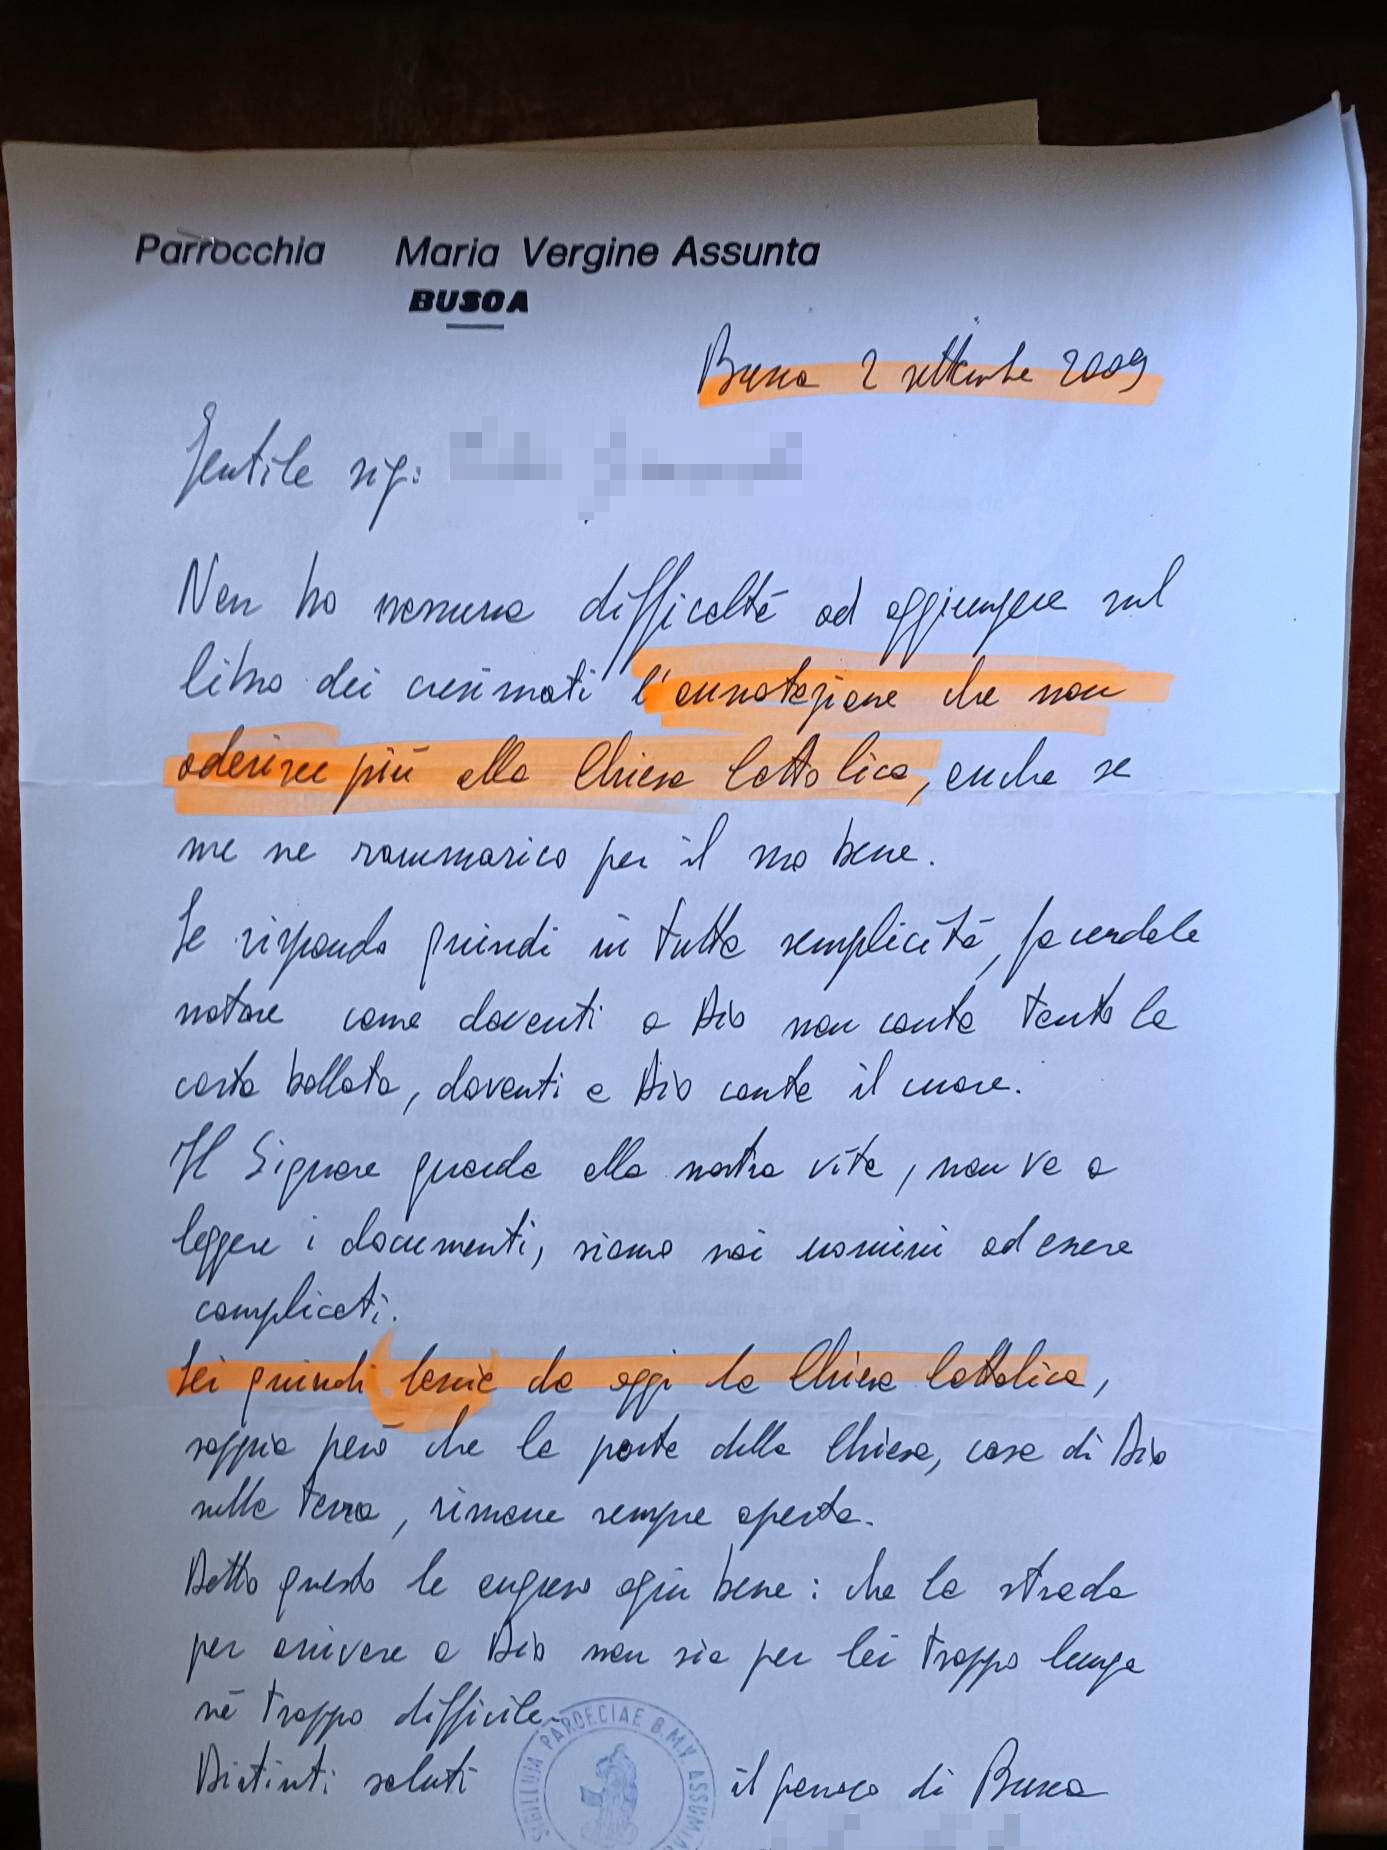 Parrocchia Maria Vergine Assunta
BUSCA
Busca 2 settembre 2009
Gentile sig:
Non ho nessuna difficoltà ad aggiungere sul
libro dei cresimati l'annotazione che non
aderisce più alla Chiesa Cattolica, anche se
me ne rammarico per il suo bene.
Le rispondo quindi in tutta semplicità, facendole
notare come davanti a Dio non conta tanto la
carta bollata, davanti a Dio conta il cuore.
Il Signore guarda alla nostra vita, non va a
leggere i documenti, siamo noi uomini ad essere
complicati.
Lei quindi lascia da oggi la Chiesa Cattolica,
sappia però che la porta della Chiesa, casa di Dio
sulla terra, rimane sempre aperta.
Detto questo le auguro ogni bene: che la strada
per arrivare a Dio non sia per lei troppo lunga
nè troppo difficile.
Distinti saluti
il parroco di Busca
SIGILLUM PAROECIAE B.M.V. ASSUM